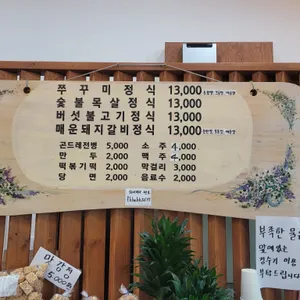 쭈꾸미정식 13,000
숯불목살정식 13,000
버섯불고기정식 13,000
매운돼지갈비정식 13,000
곤드레전병 5,000 소주 4,000
만두 2,000 맥주 4,000
떡볶기떡 2,000 막걸리 3,000
당면 2,000 음료수 2,000
마강정
5,000원
부족한 물
앞에있는
정수기 이용
부탁드립니다